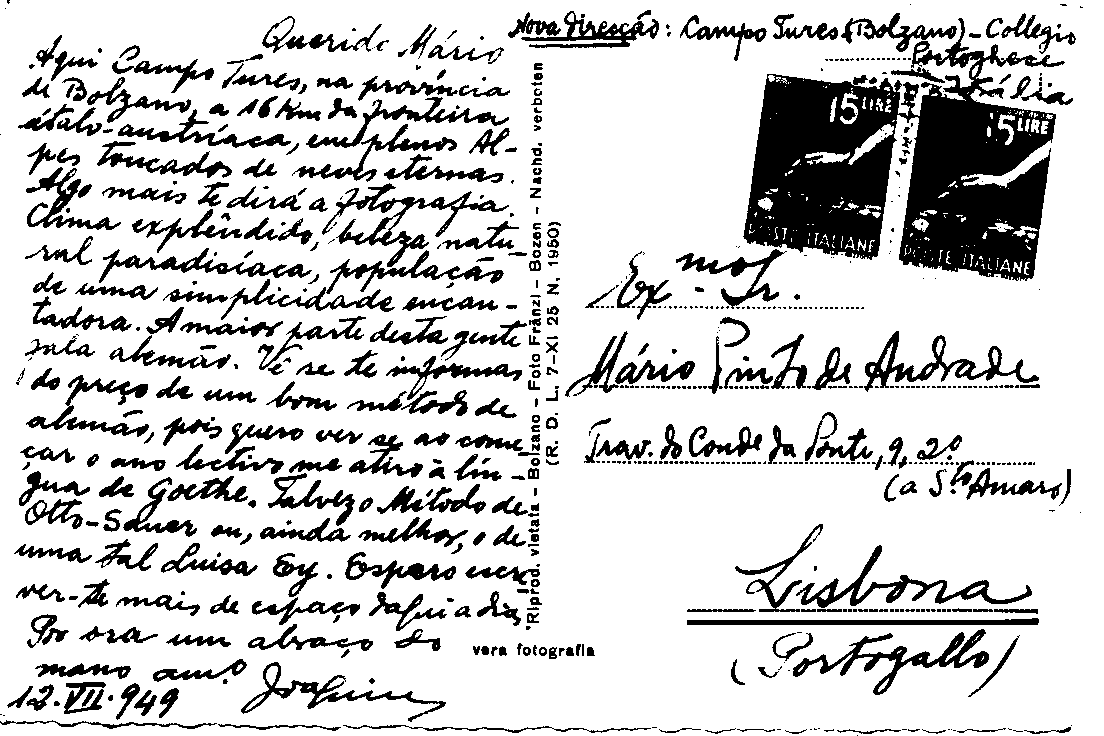 Nova direcção: Campo Tures (Bolzano) - Collegio
Portoghese
Itália
Querido Mário
Aqui Campo Tures, na província
de Bolzano, a 16 Km da fronteira
italo-austríaca, em plenos Al-
pes toucados de neves eternas.
Algo mais te dirá a fotografia.
Clima explêndido, beleza natu-
ral paradisíaca, população
de uma simplicidade encan-
tadora. A maior parte desta gente
fala alemão. Vê se te informas
do preço de um bom método de
alemão, pois quero ver se ao come-
çar o ano lectivo me atiro à lín-
gua de Goethe. Talvez o Método de
Otto-Sauer ou, ainda melhor, o de
uma tal Luisa Ey. Espero escre-
ver-te mais de espaço daqui a dias
Por ora um abraço do
mano am.º Joaquim
12.VII.949
Riprod. vietata - Bolzano - Foto Fränzl - Bozen - Nachd. verboten
(R. D. L. 7-XI 25 N. 1950)
vera fotografia
15 LIRE
POSTE ITALIANE
15 LIRE
POSTE ITALIANE
Ex.mo Sr.
Mário Pinto de Andrade
Trav. do Conde da Ponte, 9, 2.º
(a S.to Amaro)
Lisbona
(Portogallo)